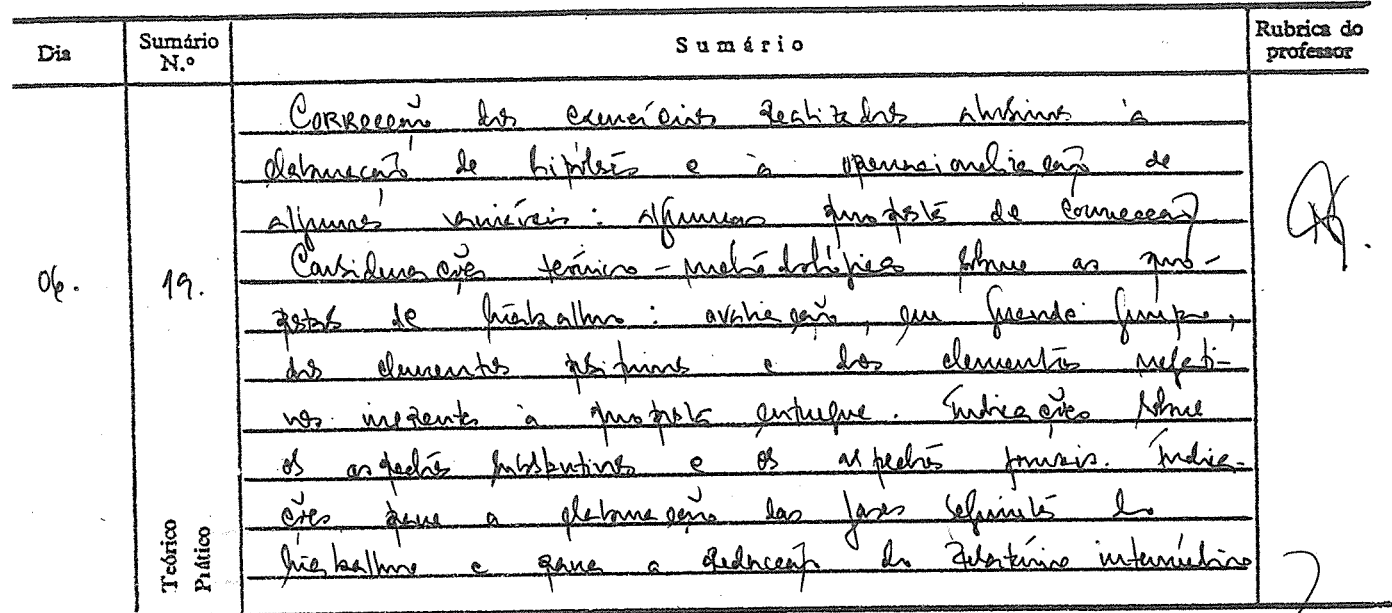 Dia Sumário N.º Sumário Rubrica do professor
Correcção dos exercícios realizados alusivos à
elaboração de hipóteses e à operacionalização de
algumas variáveis: algumas propostas de correcção
Considerações teórico-metodológicas sobre as pro-
postas de trabalho: avaliação, em grande grupo,
dos elementos positivos e dos elementos negati-
vos inerentes à proposta entregue. Indicações sobre
06. 19.
os aspectos substantivos e os aspectos formais. Indica-
ções para a elaboração das fases seguintes do
trabalho e para a redacção do relatório intermédio
Teórico
Prático